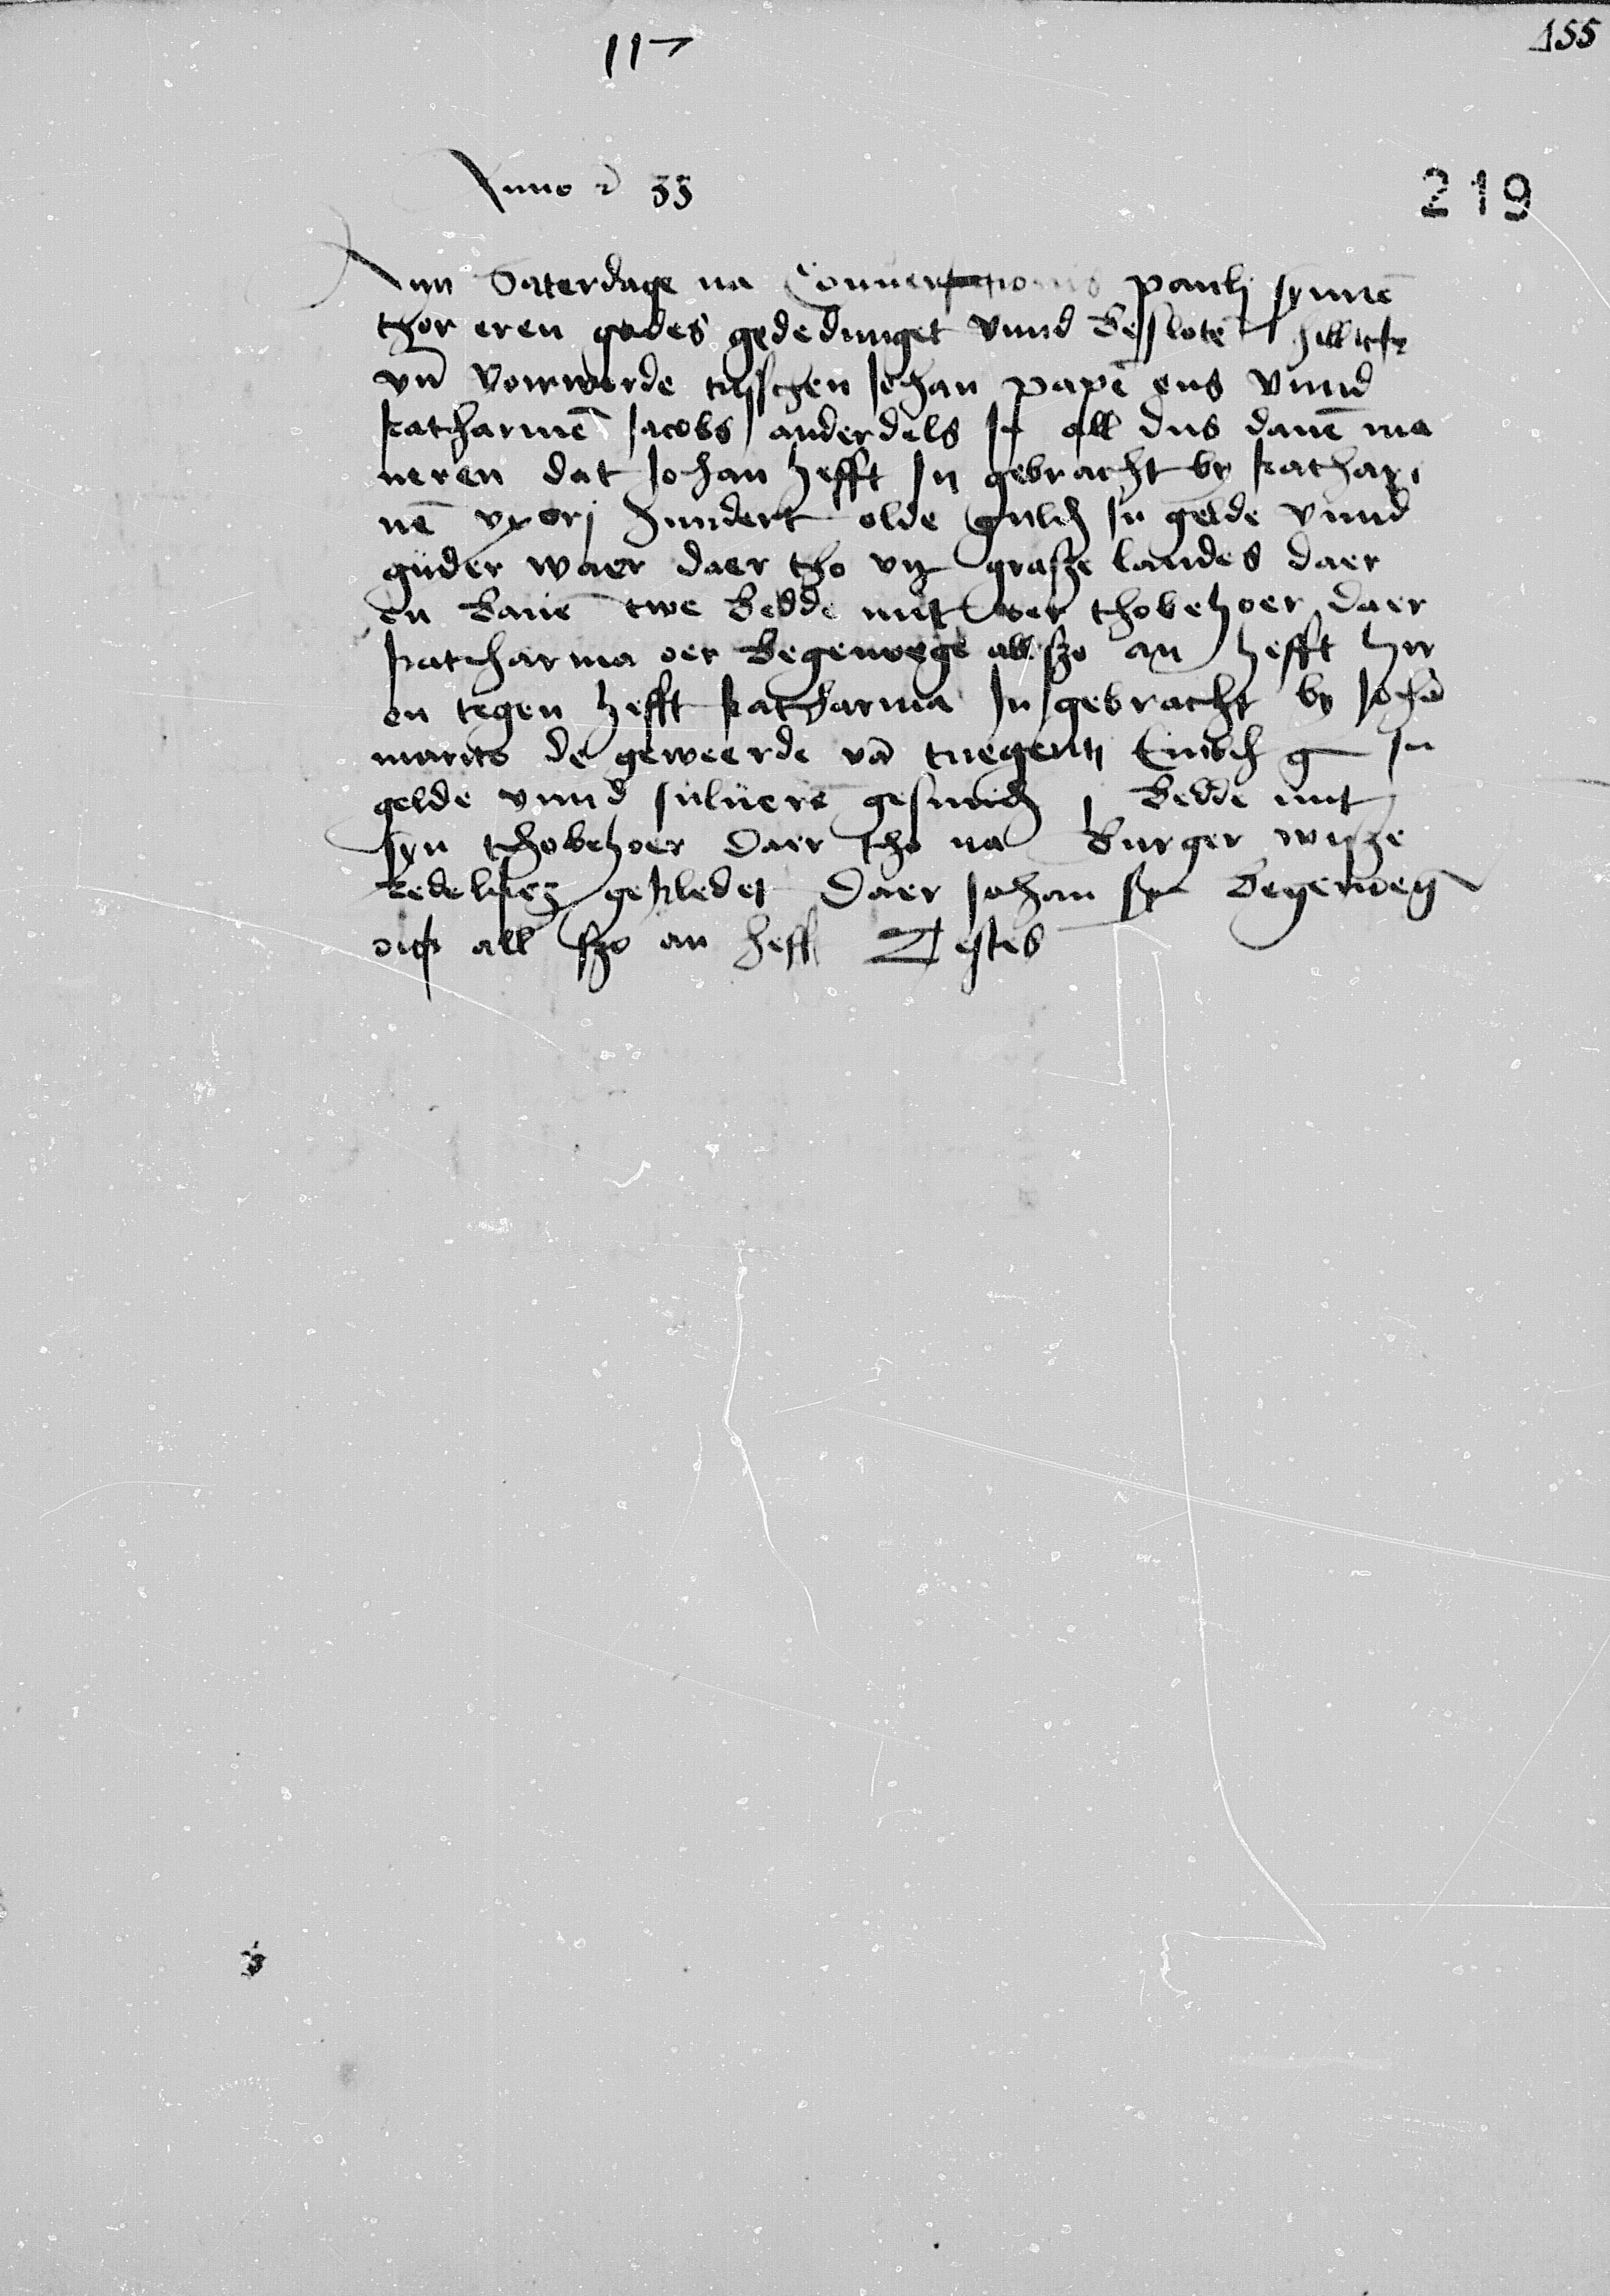 117
155
Anno d 35
219
Am Saterdage na Conuersionis pauli synnē
thor eren godes gededinget vnnd beslotē hillicke
vn̄ vorworde tusschen Johan papē ens vnnd
katharinē Jacobs anderdels Jn all dus danē ma
neren dat Johan hefft Jn gebracht by kathary
nē vxorj hundert olde guldē Jn gelde vnnd
guder waer daer tho vij graße landes daer
en bauē twe bedde mit oer thobehoer daer
katharina oer begenoege all szo an hefft hyr
en tegen hefft katharina Jn gebracht by Johā
marito de geweerde vā tnegenti Emsch g Jn
gelde vnnd suluere gesmide j bedde mit
syn thobehoer daer tho na burger wisze
redeliken gekledet daer Johan syn begenoeg
ock all szo an heff Testes